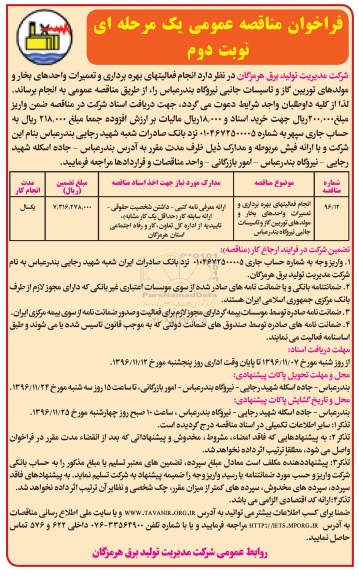 فراخوان مناقصه عمومی یک مرحله ای
نوبت دوم
شرکت مدیریت تولید برق هرمزگان در نظر دارد انجام فعالیتهای بهره برداری و تعمیرات واحدهای بخار و
مولدهای توربین گاز و تاسیسات جانبی نیروگاه بندرعباس را، از طریق مناقصه عمومی به انجام برساند.
لذا از کلیه داوطلبان واجد شرایط دعوت می گردد، جهت دریافت اسناد شرکت در مناقصه ضمن واریز
مبلغ ۲۰۰,۰۰۰ریال جهت خرید اسناد و ۱۸,۰۰۰ریال مالیات بر ارزش افزوده جمعا مبلغ ۲۱۸,۰۰۰ ریال به
حساب جاری سپهر به شماره ۰۱۰۴۶۷۲۵۰۰۰۰۵ نزد بانک صادرات شعبه شهید رجایی بندرعباس بنام این
شرکت و با ارائه فیش مربوطه و مدارک ذیل ظرف مدت مقرر به آدرس بندرعباس - جاده اسکله شهید
رجایی - نیروگاه بندرعباس - امور بازرگانی - واحد مناقصات و قراردادها مراجعه فرمایید.
شماره مناقصه
موضوع مناقصه
مدارک مورد نیاز جهت اخذ اسناد مناقصه
مبلغ تضمین (ریال)
مدت انجام کار
۹۶/۱۲
انجام فعالیتهای بهره برداری و
تعمیرات واحدهای بخار و
مولدهای توربین گاز و تاسیسات
جانبی نیروگاه بندرعباس
ارائه معرفی نامه کتبی - داشتن شخصیت حقوقی -
ارائه سابقه کار (حداقل یک کار مشابه)،
تاییدیه از اداره کل تعاون، کار و رفاه اجتماعی
استان هرمزگان
۷,۳۱۶,۲۷۸,۰۰۰
یکسال
تضمین شرکت در فرایند ارجاع کار (مناقصه):
۱. واریز وجه به شماره حساب جاری ۰۱۰۴۶۷۲۵۰۰۰۰۵ نزد بانک صادرات ایران شعبه شهید رجایی بندرعباس به نام
شرکت مدیریت تولید برق هرمزگان.
۲. ضمانتنامه بانکی و یا ضمانت نامه های صادر شده از سوی موسسات اعتباری غیر بانکی که دارای مجوز لازم از طرف
بانک مرکزی جمهوری اسلامی ایران هستند.
۳. ضمانت نامه صادره توسط موسسات بیمه گر دارای مجوز لازم برای فعالیت و صدور ضمانت نامه از سوی بیمه مرکزی ایران.
۴. ضمانت نامه های صادره توسط صندوق های ضمانت دولتی که به موجب قانون تاسیس شده یا می شوند و طبق
اساسنامه فعالیت می نمایند.
مهلت دریافت اسناد:
از روز شنبه مورخ ۱۳۹۶/۱۱/۰۷ تا پایان وقت اداری روز پنجشنبه مورخ ۱۳۹۶/۱۱/۱۲
محل و مهلت تحویل پاکات پیشنهادی:
بندرعباس - جاده اسکله شهید رجایی - نیروگاه بندرعباس - امور بازرگانی، تا ساعت ۱۵ روز سه شنبه مورخ ۱۳۹۶/۱۱/۲۴.
محل و تاریخ گشایش پاکات پیشنهادی:
بندرعباس - جاده اسکله شهید رجایی - نیروگاه بندرعباس ، ساعت ۱۰ صبح روز چهارشنبه مورخ ۱۳۹۶/۱۱/۲۵.
تذکر۱: سایر اطلاعات تکمیلی در اسناد مناقصه درج گردیده است.
تذکر ۲: به پیشنهادهایی که فاقد امضاء، مشروط، مخدوش و پیشنهاداتی که بعد از انقضاء مدت مقرر در فراخوان
واصل می شود، مطلقا ترتیب اثر داده نخواهد شد.
تذکر۳: پیشنهاددهنده مکلف است معادل مبلغ سپرده، تضمین های معتبر تسلیم و یا مبلغ مذکور را به حساب بانکی
شرکت واریز و حسب مورد ضمانتنامه یا رسید واریز وجه را ضمیمه پیشنهاد به شرکت تسلیم نماید. به پیشنهادهای فاقد
سپرده، سپرده های مخدوش، سپرده های کمتر از میزان مقرر، چک شخصی و نظایر آن ترتیب اثر داده نخواهد شد.
تذکر۴: ارائه کد اقتصادی الزامی می باشد.
ضمنا برای کسب اطلاعات بیشتر می توانید به آدرس WWW.TAVANIR.ORG.IR و یا سایت ملی اطلاع رسانی مناقصات
به آدرس HTTP://IETS.MPORG.IR مراجعه فرمایید و یا با شماره تلفن ۳۳۵۶۴۹۰۰-۰۷۶ داخلی ۶۲۲ و ۵۷۶ تماس
حاصل نمایید.
روابط عمومی شرکت مدیریت تولید برق هرمزگان